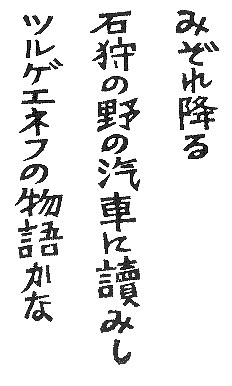 みぞれ降る
石狩の野の汽車に讀みし
ツルゲエネフの物語かな